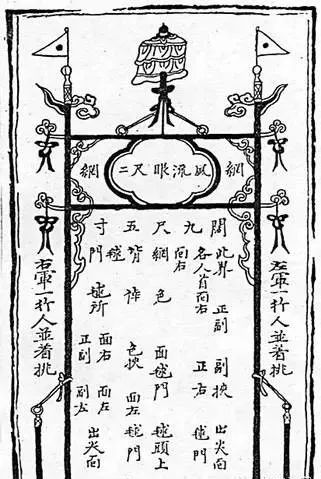 網 風流眼尺二 網
左軍一行人並著挑
闊 此界 正副 副挾 出尖面
各人皆面右 正右 毬門
九 面右
尺網 色 面毬門 毬頭上
五背作 色挾 面左 毬門
毬
寸門 毬所 面右 面左
正副 副左 出尖面
右軍一行人並著挑